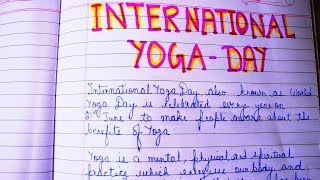 INTERNATIONAL
YOGA-DAY
International Yoga Day, also known as World
Yoga Day is celebrated every year on
21st June to make people aware about the
benefits of Yoga.
Yoga is a mental, physical and spiritual
practice which exercises our body and